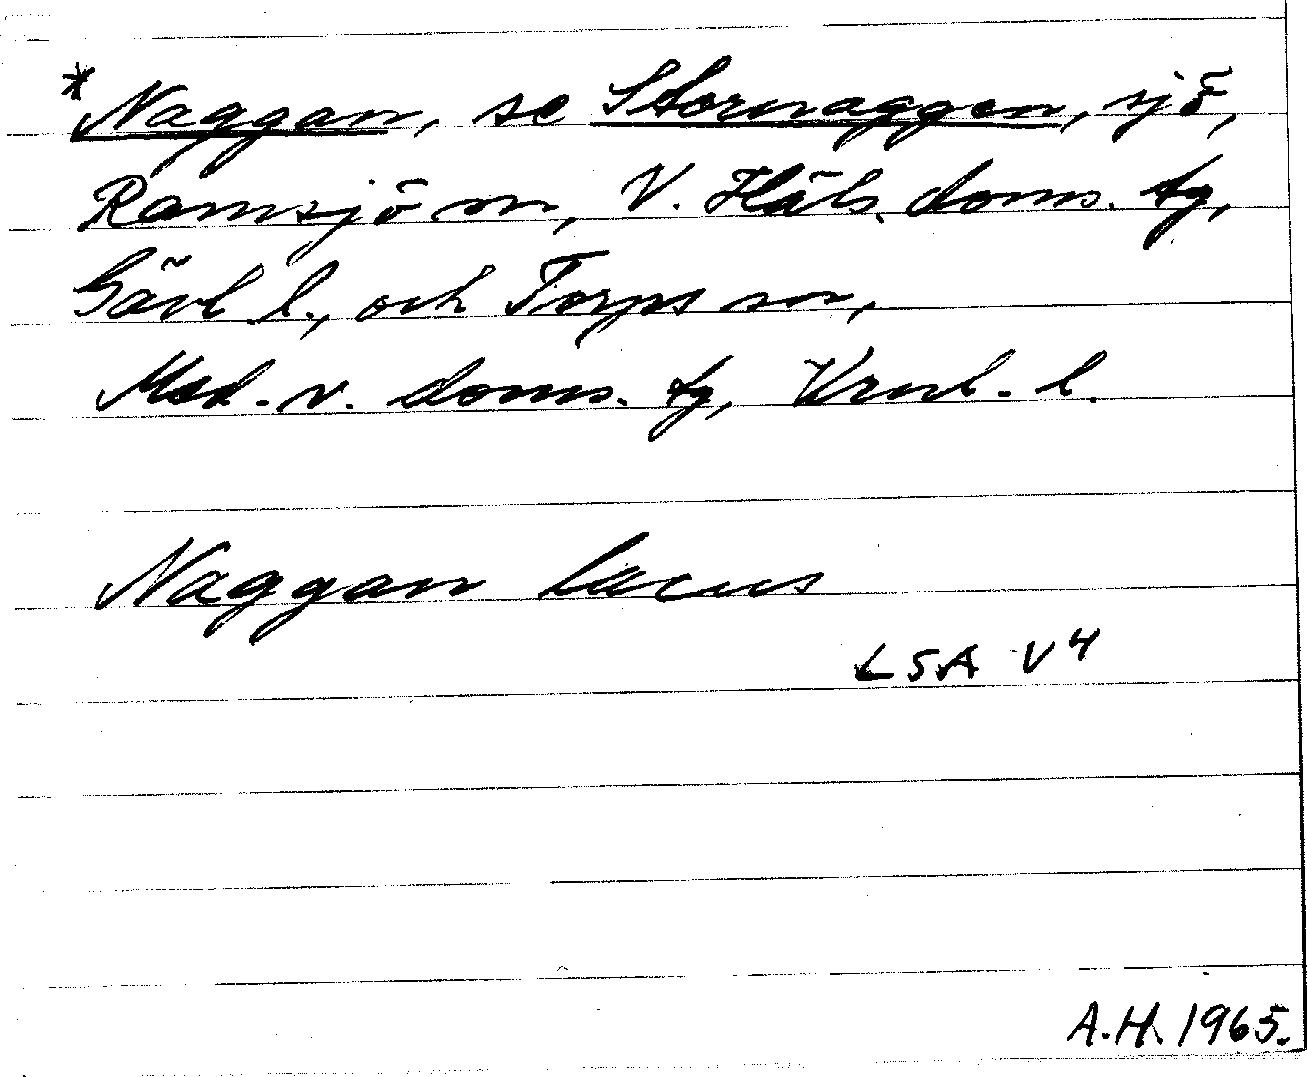 *Naggan, se Stornaggen, sjö,
Ramsjö sn, V. Häls. doms. tg,
Gävl. l., och Torps sn,
Med. v. doms. tg, Vrnl. l.
Naggan lacus
LSA V 4
A.H. 1965.